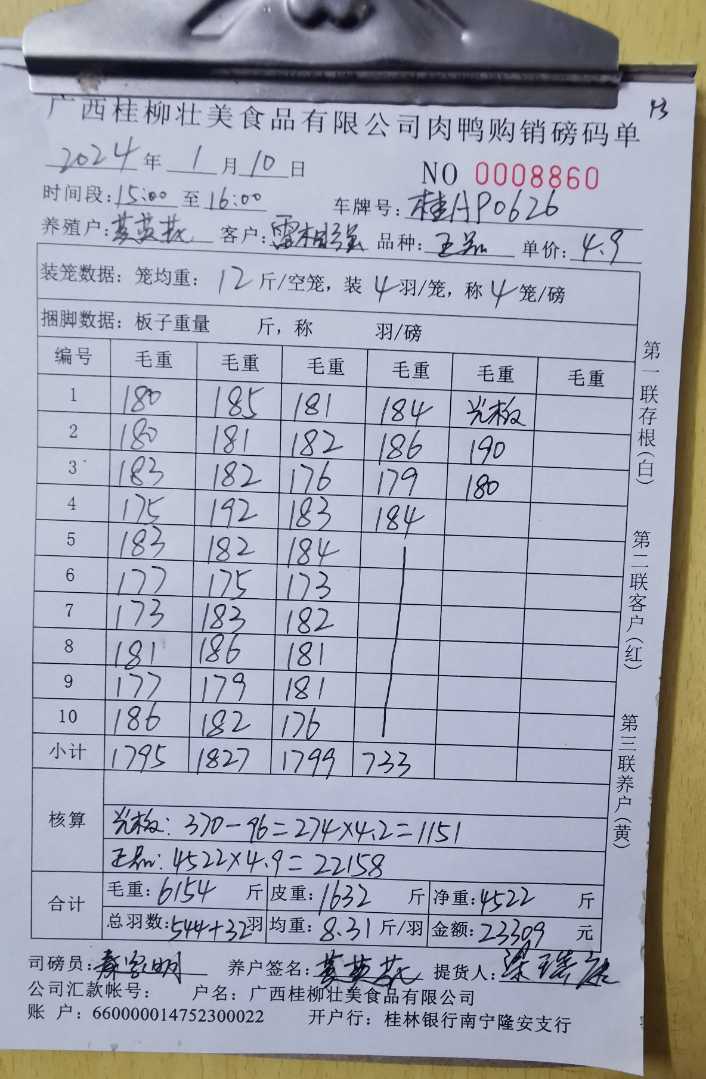 13
广西桂柳壮美食品有限公司肉鸭购销磅码单
2024 年 1 月 10 日 NO 0008860
时间段:15:00 至 16:00 车牌号:桂AP0626
养殖户: 客户:雷相强 品种:正品 单价:4.9
装笼数据:笼均重:12 斤/空笼,装 4 羽/笼,称 4 笼/磅
捆脚数据:板子重量 斤,称 羽/磅
编号 毛重 毛重 毛重 毛重 毛重 毛重
1 180 185 181 184 光板
2 180 181 182 186 190
3 183 182 176 179 180
4 175 192 183 184
5 183 182 184
6 177 175 173
7 173 183 182
8 181 186 181
9 177 179 181
10 186 182 176
小计 1795 1827 1799 733
核算
光板:370-96=274×4.2=1151
正品:4522×4.9=22158
合计 毛重:6154 斤 皮重:1632 斤 净重:4522 斤
总羽数:544+32羽 均重:8.31 斤/羽 金额:23309 元
司磅员: 养户签名: 提货人:
公司汇款帐号: 户名:广西桂柳壮美食品有限公司
账 户:660000014752300022 开户行:桂林银行南宁隆安支行
第一联存根(白)
第二联客户(红)
第三联养户(黄)